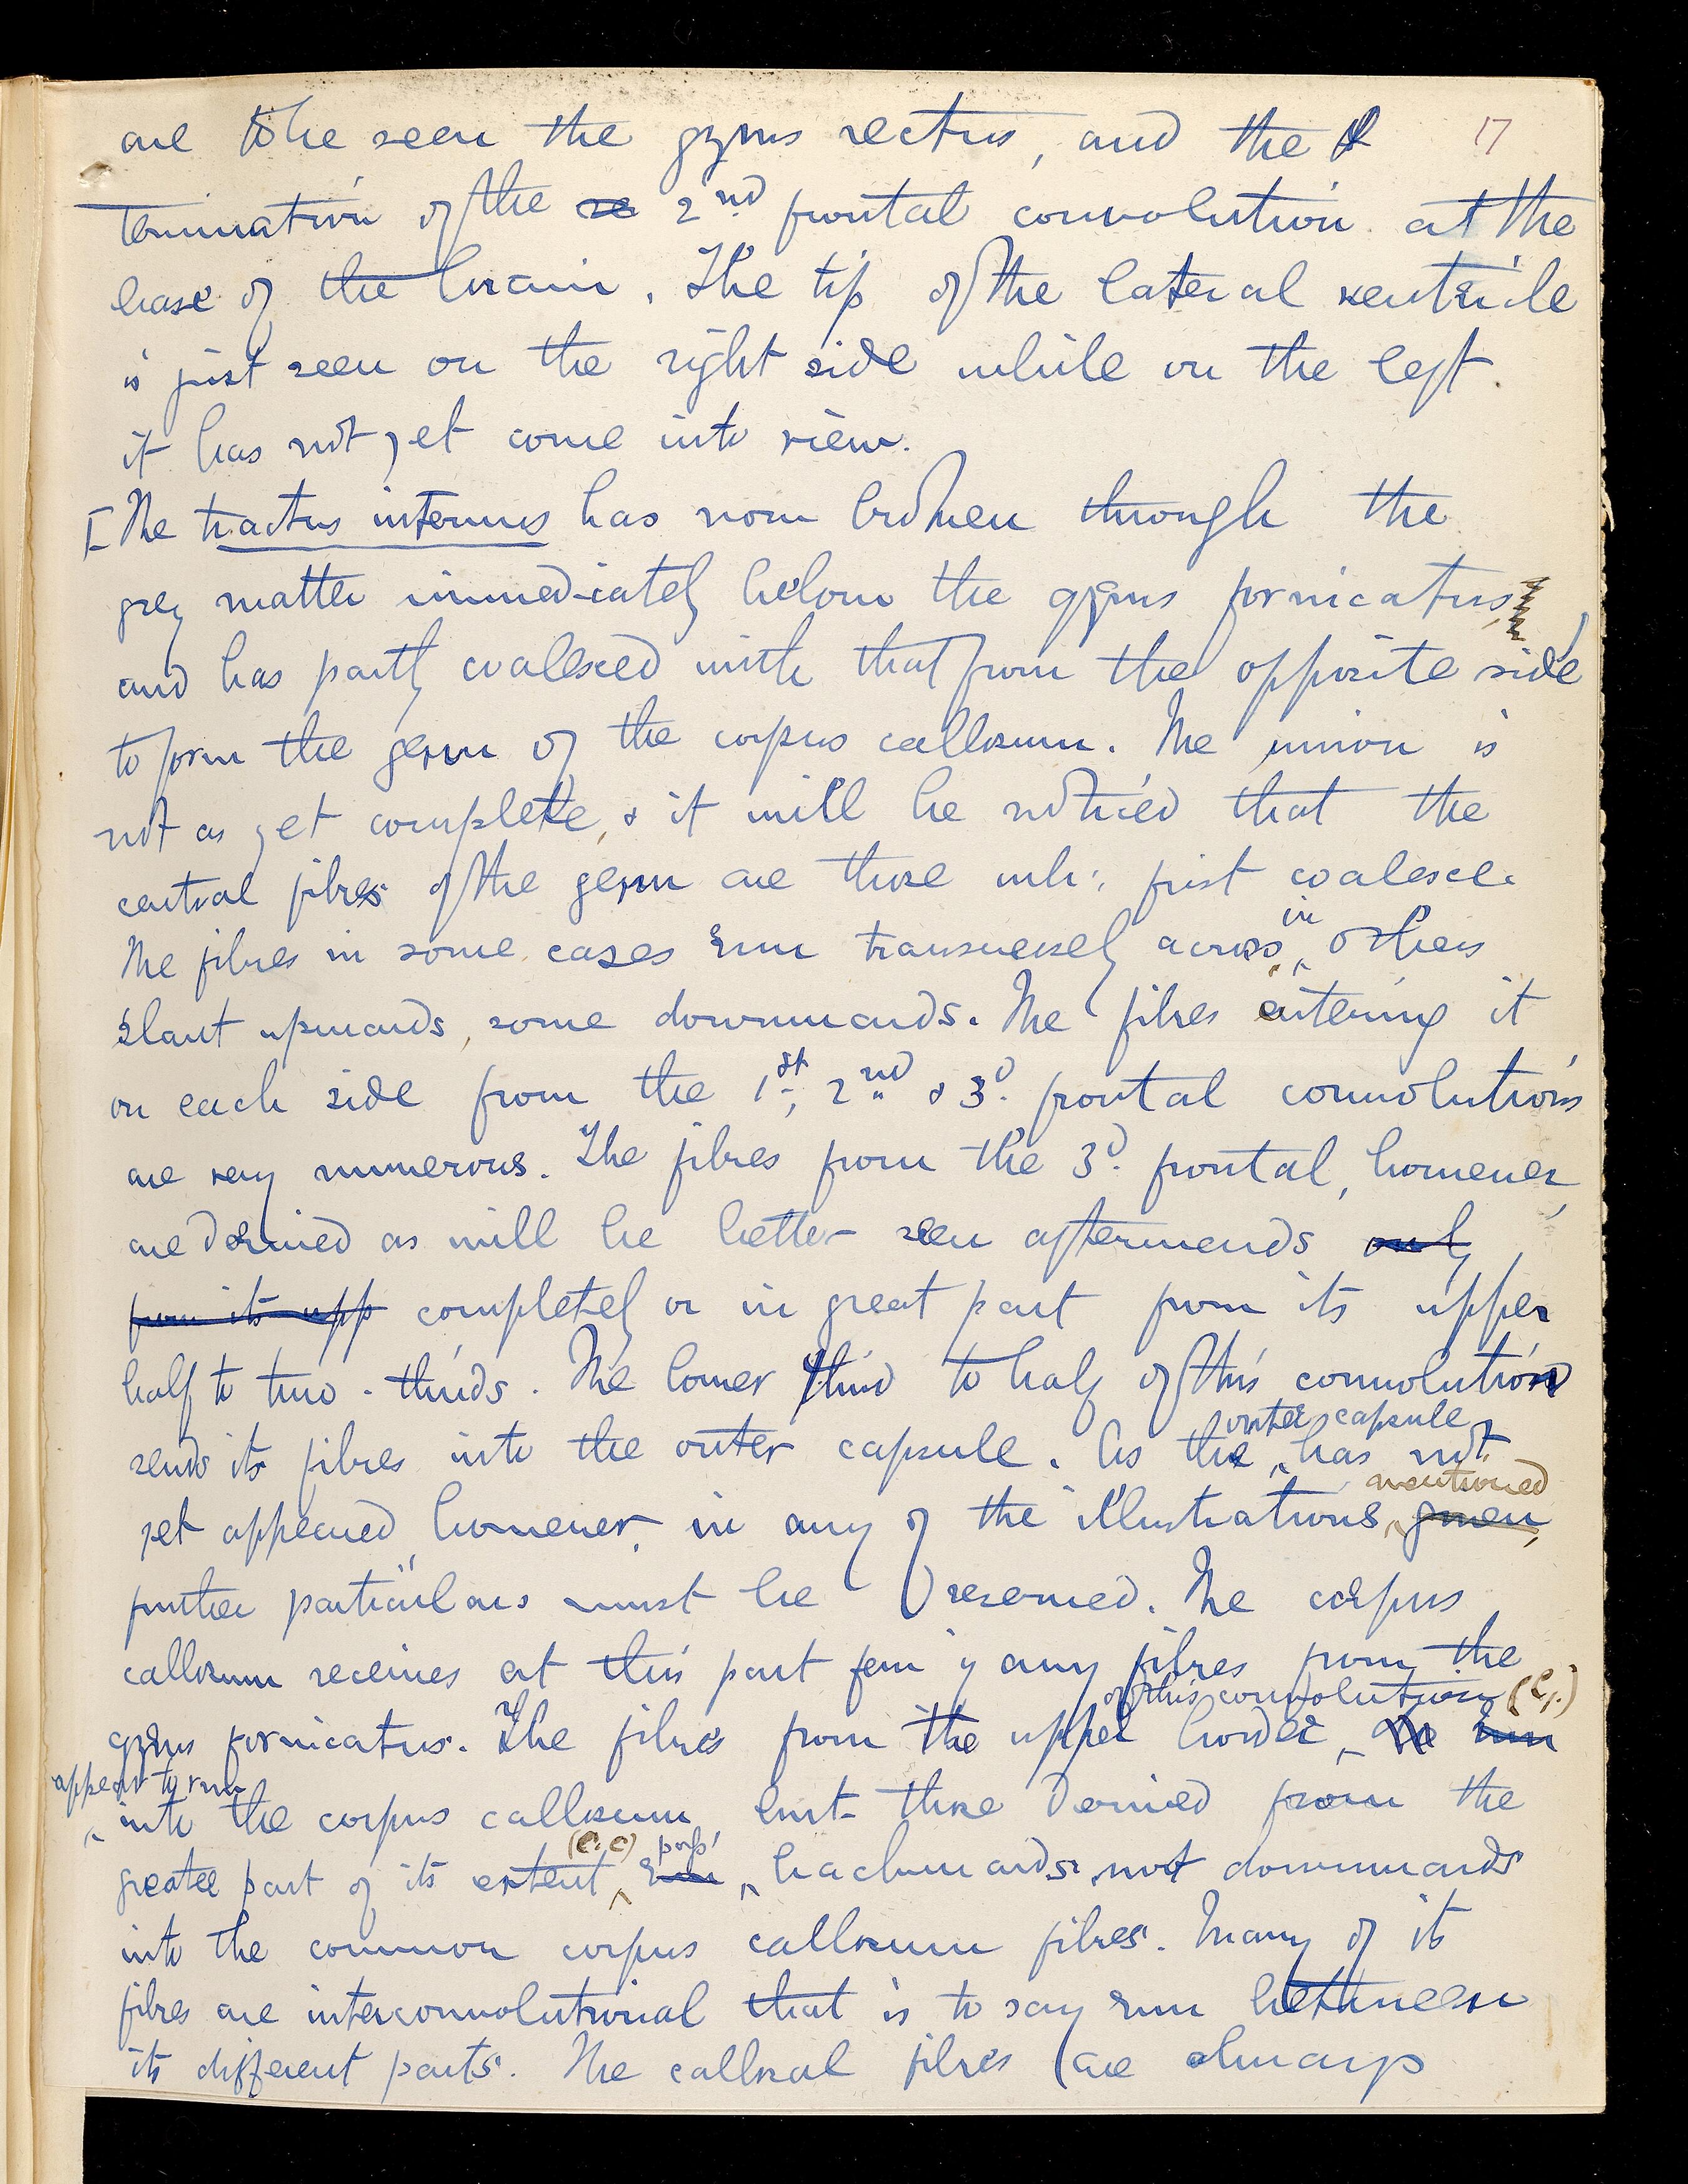 17
are to be seen the gyrus rectus, and the
termination of the 2nd frontal convolution at the
base of the brain. The tip of the lateral ventricle
is just seen on the right side while on the left
it has not yet come into view.
[The tractus internus has now broken through the
grey matter immediately below the gyrus fornicatus,
and has partly coalesced with that from the opposite side
to form the genu of the corpus callosum. The union is
not as yet complete, & it will be noticed that the
central fibres of the genu are those wh: first coalesce.
in
The fibres in some cases run transversely across, others
slant upwards, some downwards. The fibres entering it
on each side from the 1st, 2nd & 3d. frontal convolutions
are very numerous. The fibres from the 3d. frontal, however,
are derived as will be better seen afterwards only
from its upp completely or in great part from its upper
half to two-thirds. The lower third to half of this convolution
outer capsule
sends its fibres into the outer capsule. As the has not
mentioned
yet appeared, however, in any of the illustrations, given,
further particulars must be reserved. The corpus
callosum receives at this part few if any fibres from the
of this convolution
gyrus fornicatus. The fibres from the upper border run
appear to run
into the corpus callosum but those derived from the
(c.c) pass
greater part of its extent, run backwards, not downwards
into the common corpus callosum fibres. Many of its
fibres are interconvolutional that is to say run between
its different parts. The callosal fibres are always